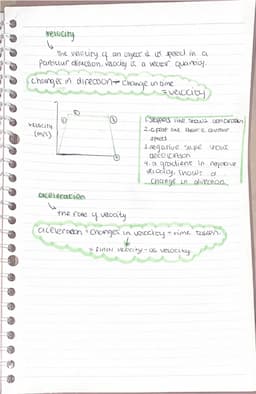 velocity
the velocity of an object is its speed in a
particular direction. velocity is a vector quantity.
changes in direction ÷ change in time
= velocity
velocity
(m/s)
2. a flat line shows constant
speed
3. negative slope shows
deceleration
4. a gradient in negative
velocity shows a
change in direction
acceleration
the rate of velocity
acceleration = changes in velocity ÷ time taken
= final velocity - velocity